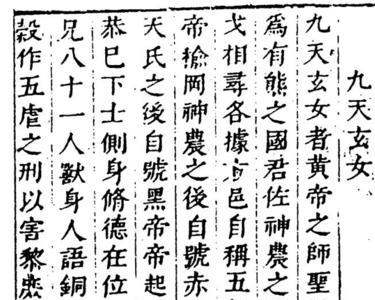 九天玄女
九天玄女者黃帝之師聖
爲有熊之國君佐神農之
戈相尋各據方邑自稱五
帝榆岡神農之後自號赤
天氏之後自號黑帝帝起
恭巳下士側身脩德在位
兄八十一人獸身人語銅
穀作五虐之刑以害黎庶